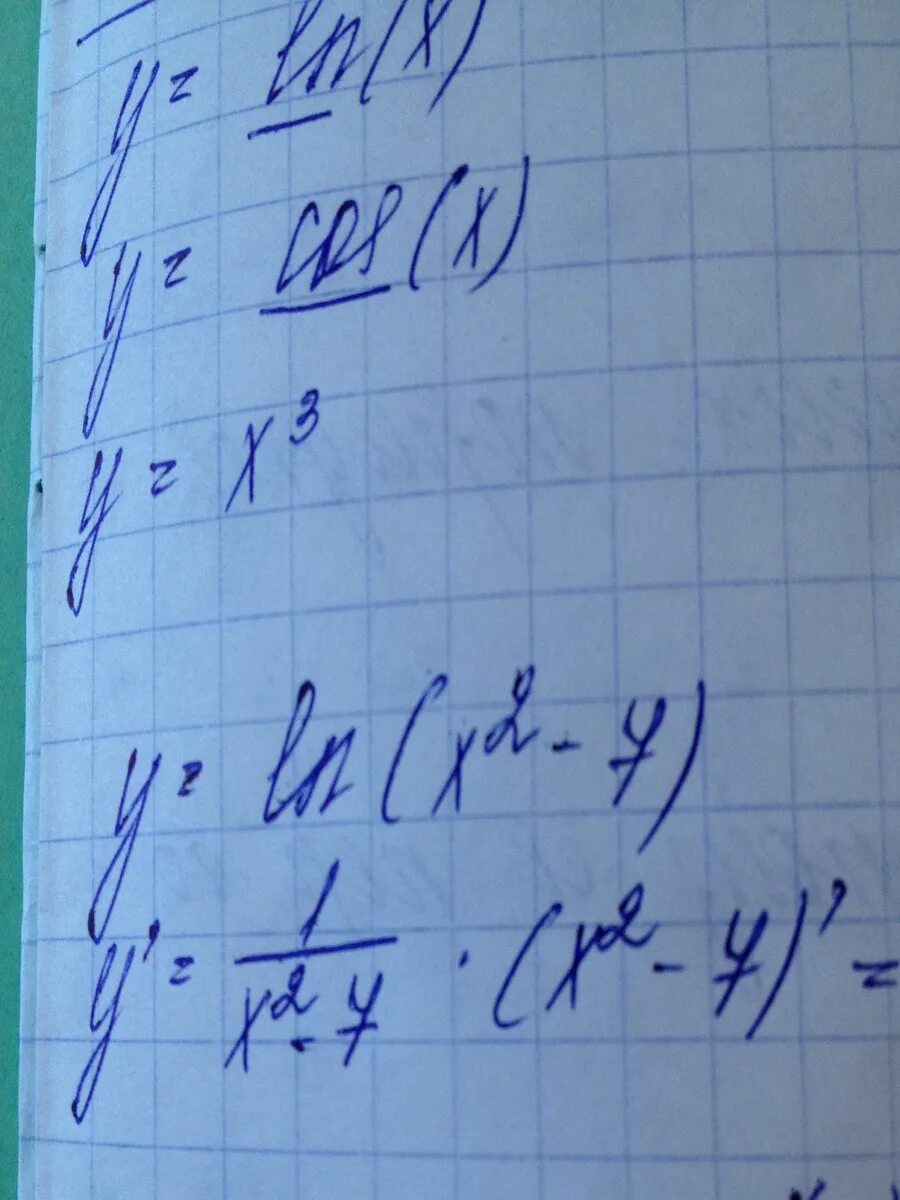 y = ln(x)
y = cos(x)
y = x³
y = ln(x² - 7)
y' = 1/(x² - 7) · (x² - 7)' =